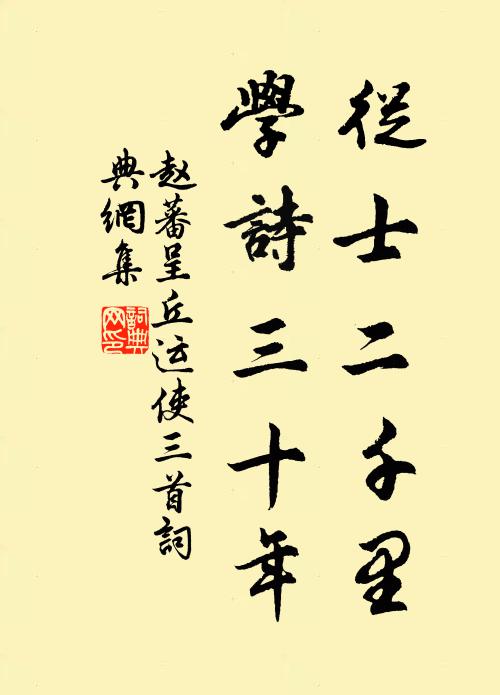 從士二千里
學詩三十年
赵蕃呈丘运使三首詞
典網集
詞典
网印